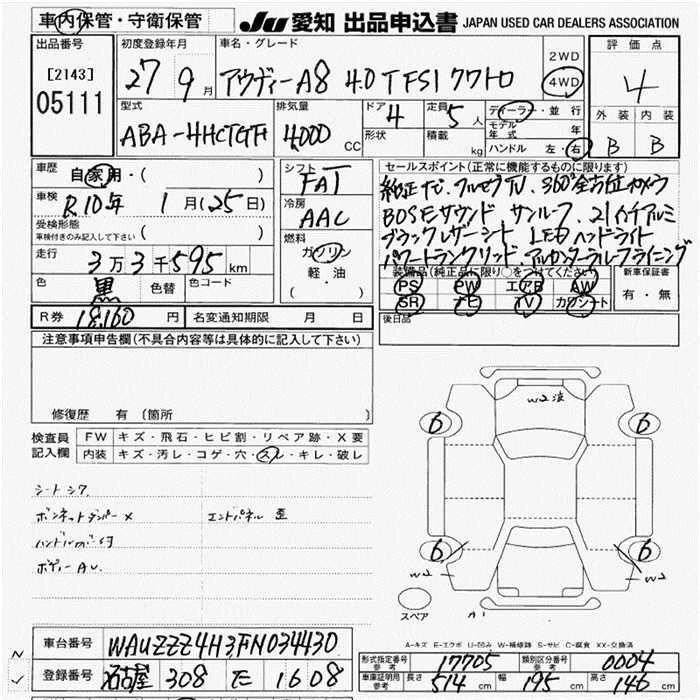 車内保管・守衛保管 JU 愛知 出品申込書 JAPAN USED CAR DEALERS ASSOCIATION
出品番号 [2143] 05111
初度登録年月 27 9月
車名・グレード アウディーA8 4.0TFSI クワトロ
2WD 4WD
評価点 4
外装 内装 B B
型式 ABA-4HCTGF
排気量 4000 CC
ドア 4 形状
定員 5人 積載 kg
ディーラー・並行
モデル年式 年
ハンドル 左・右
車歴 自家用・( )
車検 R10年 1月(25日)
受検形態 車検付きのみ記入して下さい ( )
走行 3万3千595km
色 黒 色替 色コード
R券 18,160 円 名変通知期限 月 日
シフト FAT
冷房 AAC
燃料 ガソリン 軽油 ( )
セールスポイント(正常に機能するものに限ります)
純正ナビ、フルセグTV、360°全方位カメラ
BOSEサウンド サンルーフ、21インチアルミ
ブラックレザーシート LEDヘッドライト
パワートランクリッド、アルカンターラルーフライニング
装備品(純正品に限り○をつけてください)
PS PW エアB AW
SR ナビ TV カワシート
新車保証書 有・無
後日品
注意事項申告欄(不具合内容等は具体的に記入して下さい)
修復歴 有 (箇所 )
検査員記入欄
FW キズ・飛石・ヒビ割・リペア跡・X要
内装 キズ・汚レ・コゲ・穴・スレ・キレ・破レ
シートシワ
ボンネットダンパー× エンドパネル 歪
ボディーAU
W2 凹
6 6
6 6
W2 W2
スペア A1
A-キズ E-エクボ U-凹み W-補修跡 S-サビ C-腐食 XX-交換済
車台番号 WAUZZZ4H3FN034430
登録番号 名古屋 308 モ 1608
形式指定番号 参考 17705 類別区分番号 参考 0004
車庫証明用 参考 長さ 514 cm 幅 195 cm 高さ 146 cm